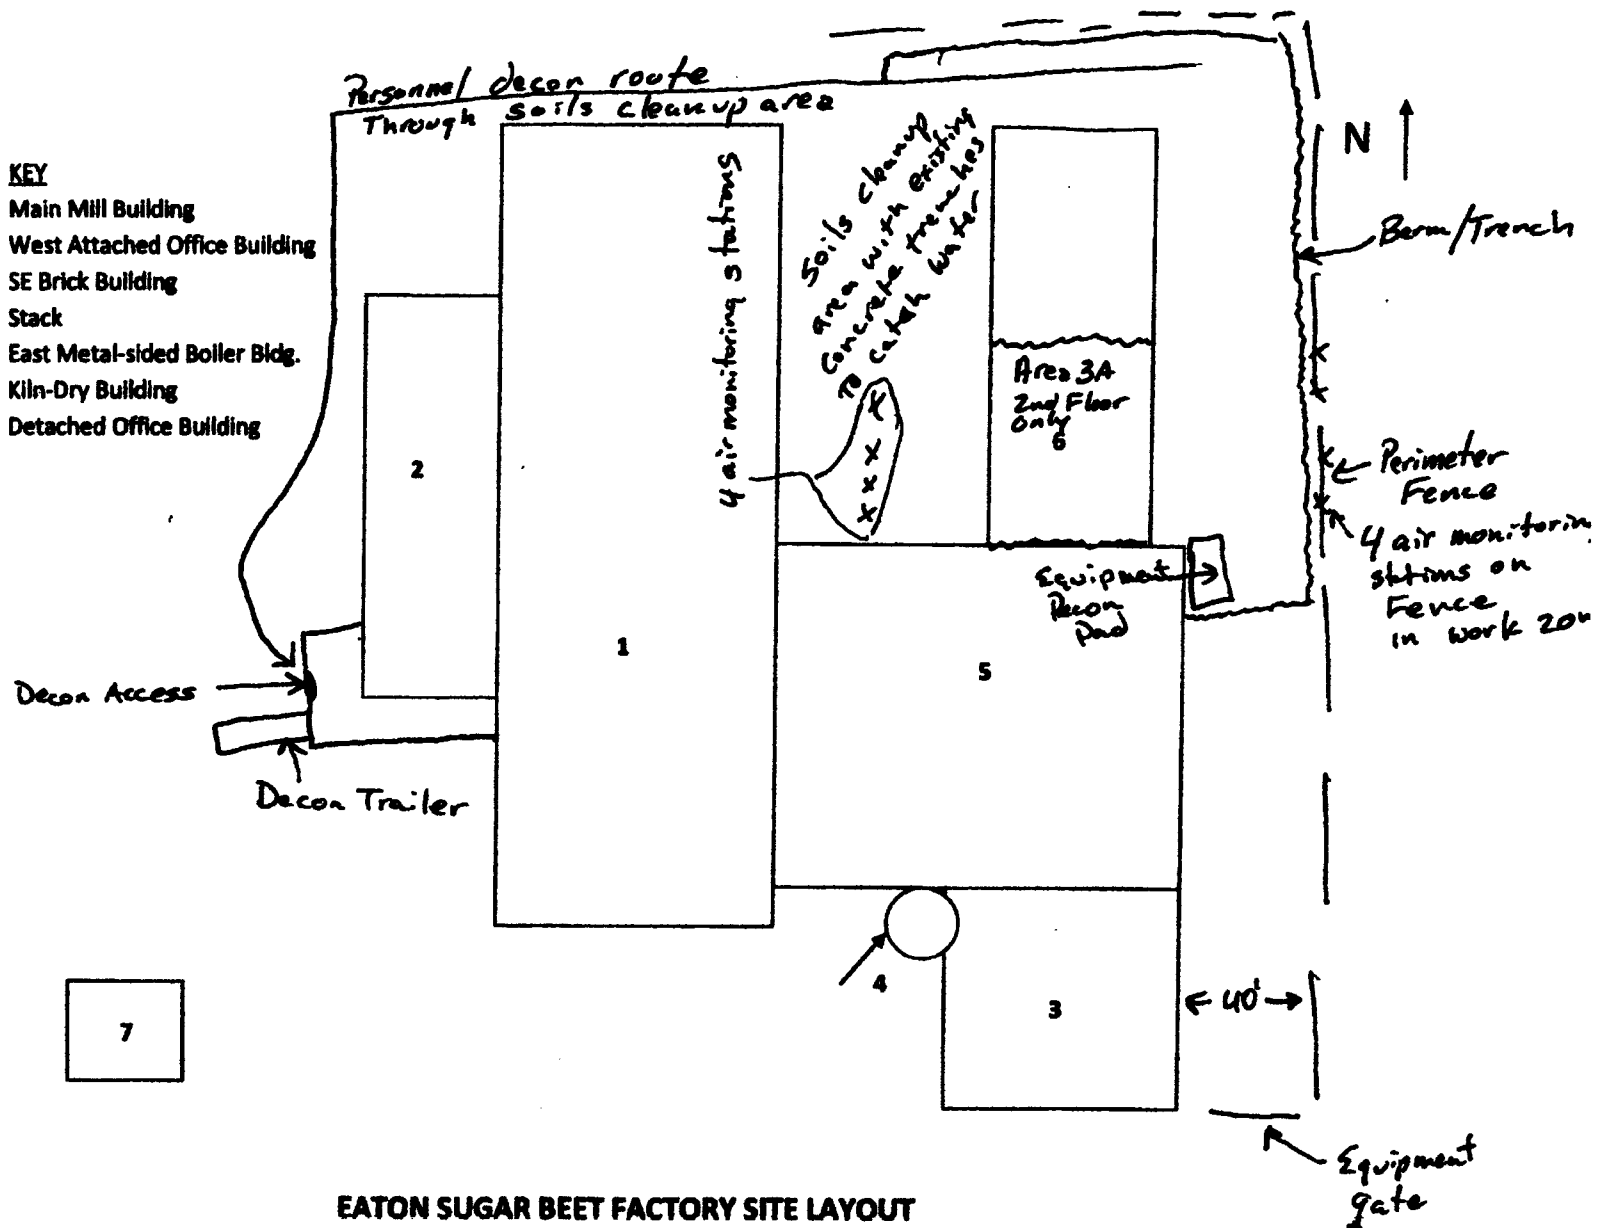 Personnel decon route
Through soils cleanup area
N
KEY
Main Mill Building
West Attached Office Building
SE Brick Building
Stack
East Metal-sided Boiler Bldg.
Kiln-Dry Building
Detached Office Building
4 air monitoring stations
Soils cleanup
area with existing
concrete trenches
To catch water
Berm/Trench
Area 3A
2nd Floor
Only
6
2
Perimeter
Fence
4 air monitorin
stations on
Fence
in work zon
Equipment
Decon
Pad
1
5
Decon Access
Decon Trailer
4
3
40'
7
Equipment
gate
EATON SUGAR BEET FACTORY SITE LAYOUT